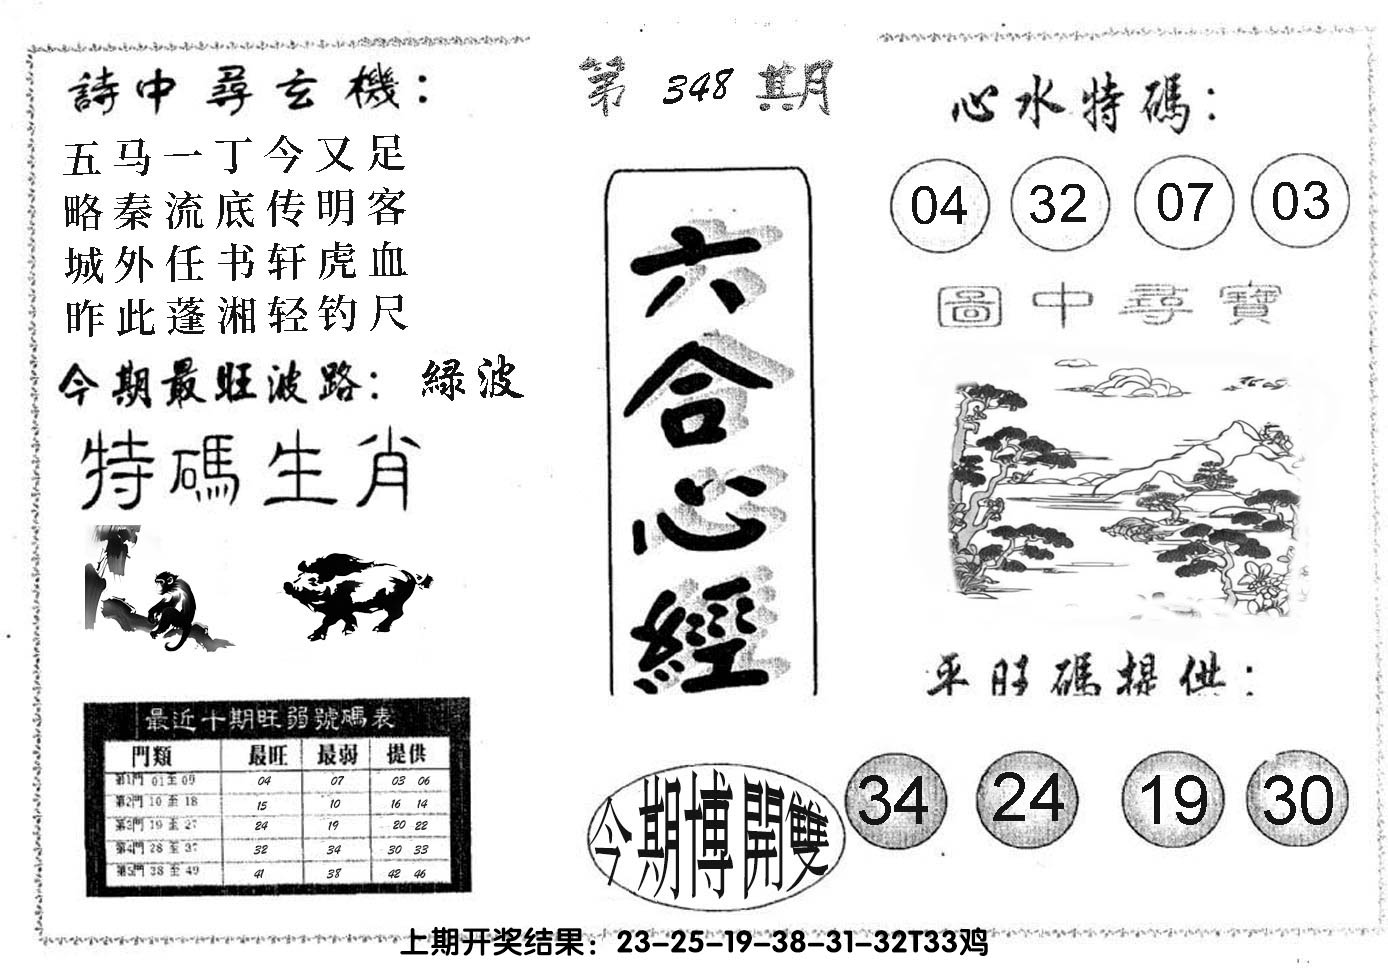 第 348 期
詩中尋玄機：
五马一丁今又足
略秦流底传明客
城外任书轩虎血
昨此蓬湘轻钓尺
今期最旺波路：綠波
特碼生肖
最近十期旺弱號碼表
門類 最旺 最弱 提供
第1門 01至09 04 07 03 06
第2門 10至18 15 10 16 14
第3門 19至27 24 19 20 22
第4門 28至37 32 34 30 33
第5門 38至49 41 38 42 46
六合心經
今期博開雙
心水特碼：
04 32 07 03
圖中尋寶
平旺碼提供：
34 24 19 30
上期开奖结果：23-25-19-38-31-32T33鸡